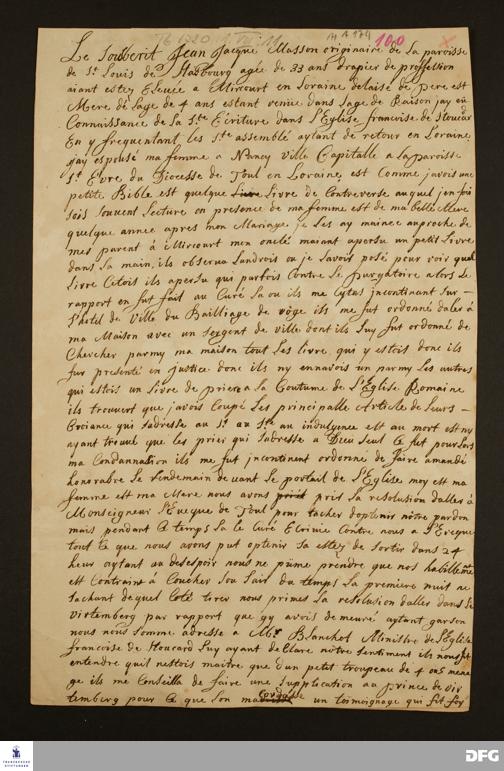 100
Le Souberit Jean Jacque Masson originaire de La paroisse
de St. Louis de Strasbourg agée de 33 ans drapier de proffession
aiant estez Elevée a Mircourt en Loraine delaisé de pere est
Mere de lage de 4 ans estant venüe dans lage de Raison jay eü
Connaissance de La Ste. Ecriture dans l'Eglise francoise de Stoucar
En y frequentant les Ste. assemblé aytant de retour en Loraine
jay espousé ma femme a Nancy ville Capitalle a la paroisse
St. Evre du Diocesse de Toul en Loraine, est comme javois une
petite Bible est quelque Livre de Controverse auquel jen foi
sois souvent Lecture en presance de ma femme est de ma belle Mere
quelque annee apres mon Mariage je Les ay mainee auproche de
mes parent a Mircourt mon onclé maiant apersu un petit Livre
dans la main, ils observa Landrois ou je Lavois posé pour voir quel
Livre Cetois ils apersu qui parlois Contre Le purgatoire alors Le
rapport en fut fait au Curé La ou ils me Cytas incontinant sur
l'hotel de ville du Bailliage de vôge ils me fut ordonné daler a
ma Maison avec un sergent de ville dont ils luy fut ordonné de
Chercher parmy ma maison tout Les livre, qui y estois donc ils
fur presenté en justice donc ils ny ennavois un parmy Les autres
qui estois un Livre de priere a La Coutume de l'Eglise Romaine
ils trouvert que javois Coupé Les principalle Article de Leurs
Croiance qui sadresse au St. au Ste. au indulgence est au mort est ny
ayant trouvé que les prier qui sadresse a Dieu Seul Ce fut pour lors
ma Condannation ils me fut jncontinent ordonné de faire amandé
honorabre Le lendemain devant Le portail de l'Eglise moy est ma
femme est ma Mere nous avons pris La resolution dalles à
Monseigneur l'Eveque de Toul pour tacher doptenir nôtre pardon
mais pendant Ce temps La le Curé Ecrivie Contre nous a l'Eveque
tout Ce que nous avons put optenir sa estez de sortir dans 24
heur aytant au desespoir nous ne pûme prendre que nos habillemte
est Contrains à Coucher sou lair du temps La premiere nuit ne
sachant dequel Coté tirer nous primes La resolution dalles dans Le
Virtemberg par rapport que jy avois demeuré aytant garson
nous nous somme adresse a Mr. Blanchot Ministre de l'Eglise
francoise de Stoucard Luy ayant declare nôtre sentiment ils nous fit
entendre quil nestois maitre que dun petit troupeau de 4 ou 5 mena
ge ils me Conseilla de faire une supplication au prince de vir
temberg pour Ce que son un toimoignage qui fit for
FRANCKESCHE STIFTUNGEN
DFG